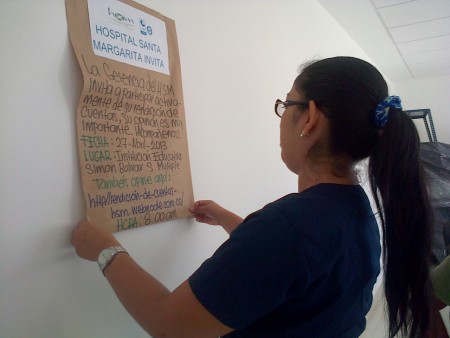 HOSPITAL SANTA
MARGARITA INVITA
La Gerencia del HSM
invita a participar activa-
mente de su rendición de
cuentas, su opinión es muy
importante
FECHA: 27-Abril-2013
LUGAR: Institución Educativa
Simón Bolívar S.
También opine aquí:
http://rendicion-de-cuentas-
hsm.webnode.com.co/
HORA: 8:00 am